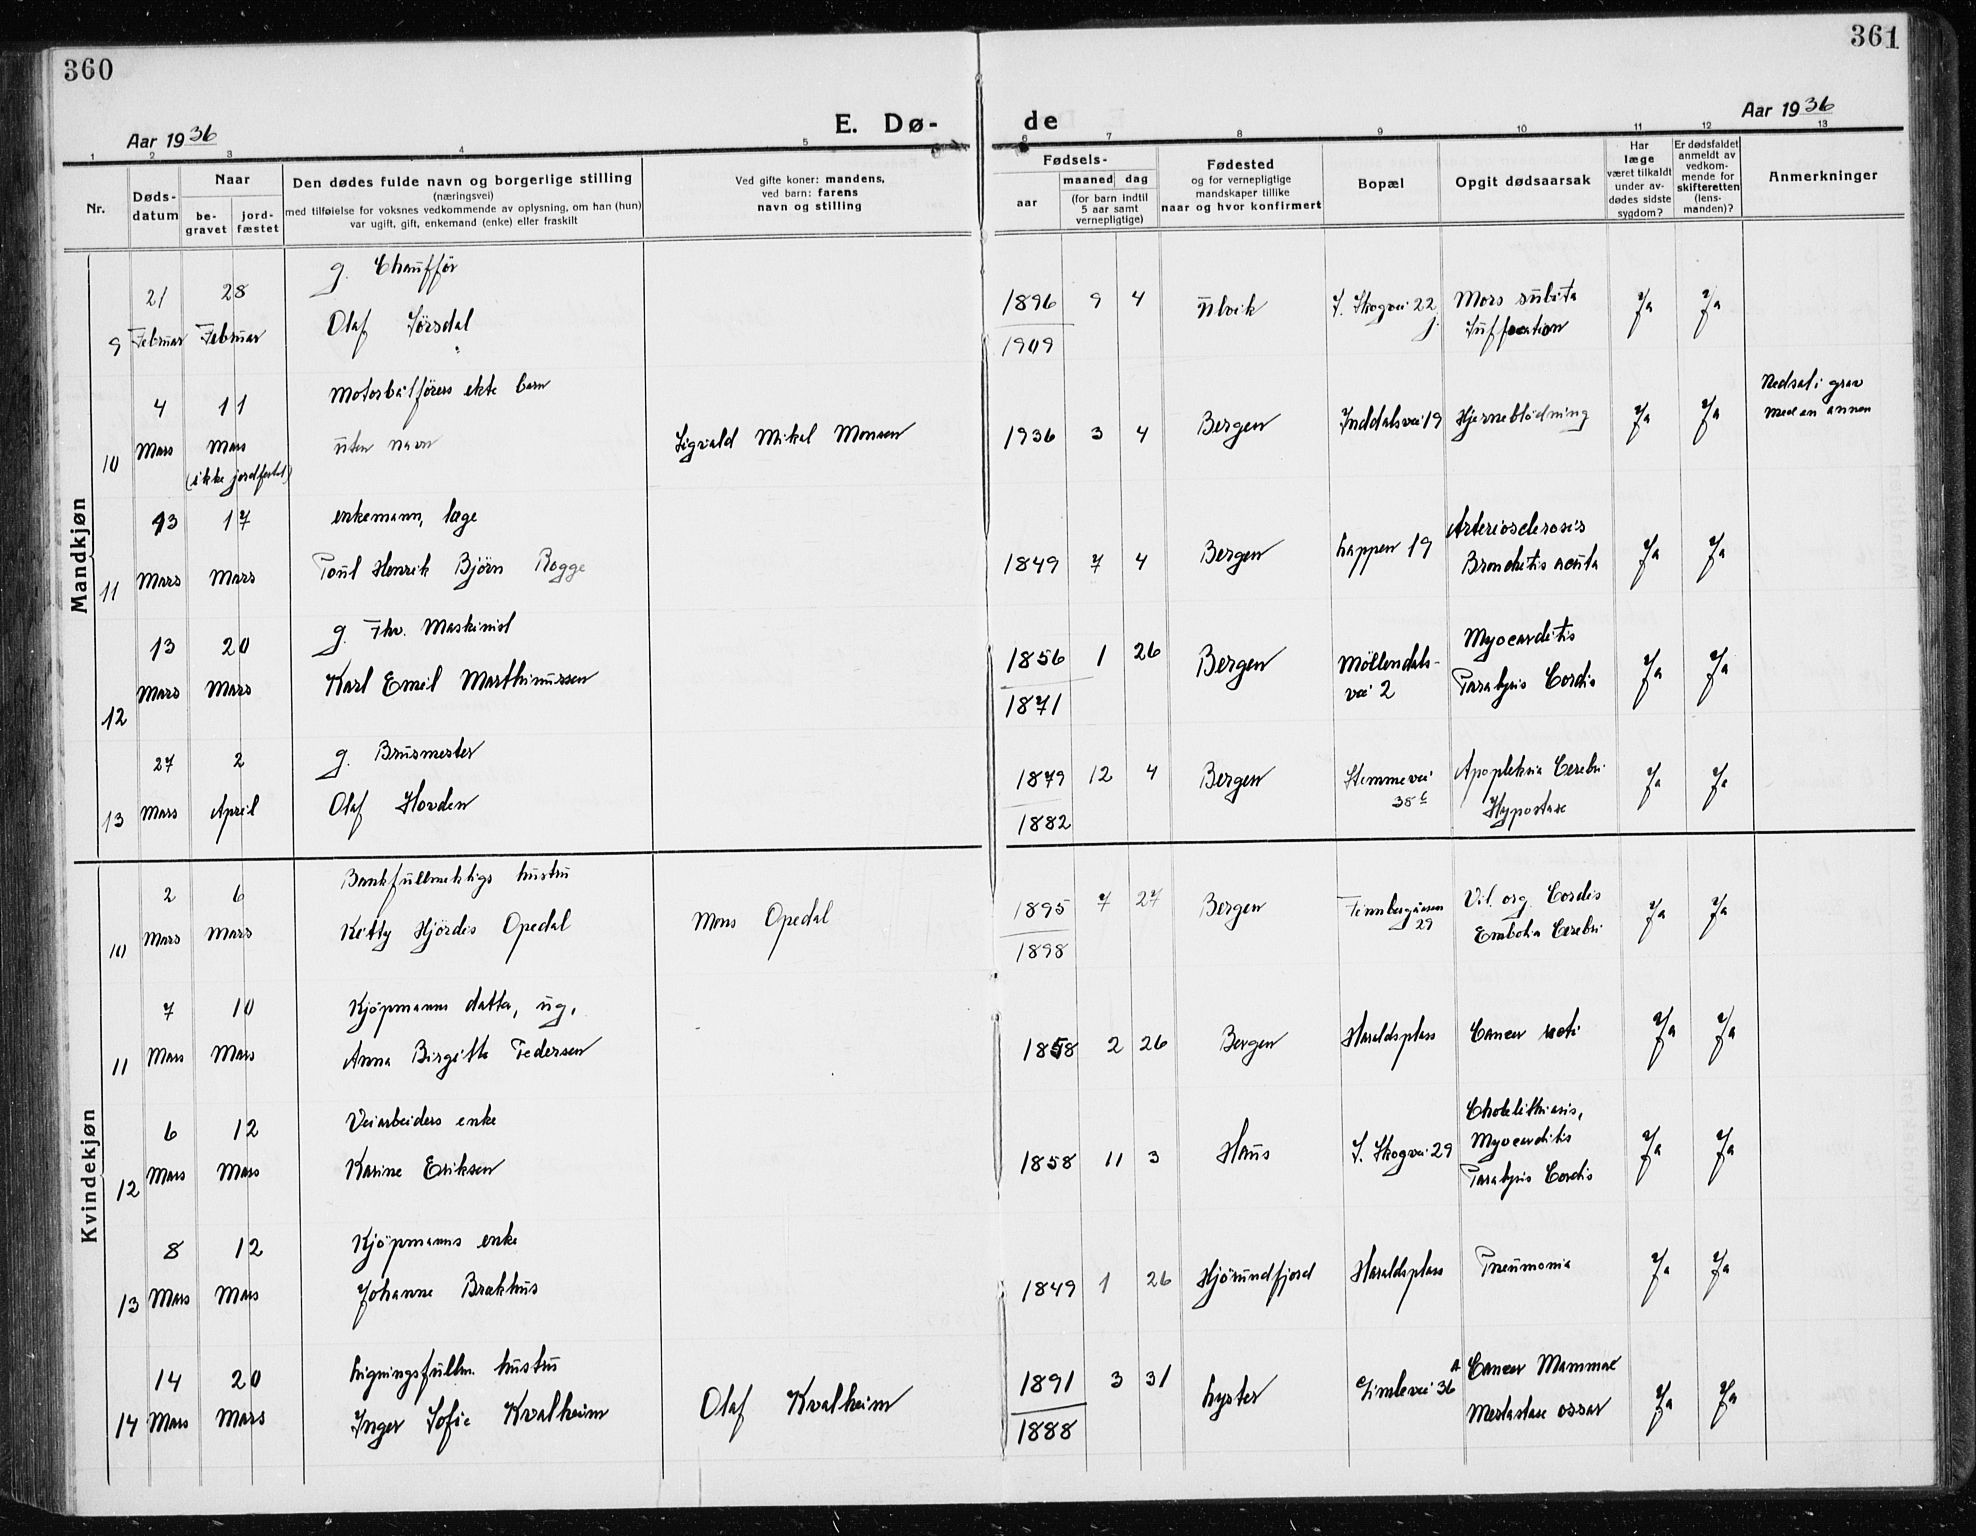 360
361
Aar 1936
E. Dø-
de
Aar 1936
1 2 3 4 5 6 7 8 9 10 11 12 13
Nr.
Døds-
datum
Naar
be-
gravet
jord-
fæstet
Den dødes fulde navn og borgerlige stilling
(næringsvei)
med tilføielse for voksnes vedkommende av oplysning, om han (hun)
var ugift, gift, enkemand (enke) eller fraskilt
Ved gifte koner: mandens,
ved barn: farens
navn og stilling
Fødsels-
aar
maaned dag
(for barn indtil
5 aar samt
vernepligtige)
Fødested
og for vernepligtige
mandskaper tillike
naar og hvor konfirmert
Bopæl
Opgit dødsaarsak
Har
læge
været tilkaldt
under av-
dødes sidste
sygdom?
Er dødsfaldet
anmeldt av
vedkom-
mende for
skifteretten
(lens-
manden)?
Anmerkninger
Mandkjøn
g. Chauffør
21 28 1896 9 4 Ulvik I. Skogvei 22 j. Mors subita Ja Ja
9 Februar Februar Olaf Sørsdal 1909 Suffocation
Motorbåtførers ekte barn
4 11 Nedsat i grav
med en annen
10 Mars Mars uten navn Sigvald Mikal Monsen 1936 3 4 Bergen Inddalsvei 19 Hjerneblødning Ja Ja
(ikke jordfestet)
13 17 enkemann, læge Arteriosclerosis
11 Mars Mars Poul Henrik Bjørn Rogge 1849 7 4 Bergen Lappen 19 Bronchitis acuta Ja Ja
13 20 g. Fhv. Maskinist 1856 1 26 Bergen Møllendals- Myocarditis
12 Mars Mars Karl Emil Marthinussen 1871 vei 2 Paralysis Cordis Ja Ja
27 2 g. Brusmester 1879 12 4 Bergen Stemmevei Apoplekxia Cerebri Ja Ja
13 Mars April Olaf Hovden 1882 38 c Hypostase
Kvindekjøn
2 6 Bankfullmektigs hustru 1895 7 27 Bergen Finnbergåsen Vit. org. Cordis Ja Ja
10 Mars Mars Kitty Hjördis Opedal Mons Opedal 1898 29 Embolia Cerebri
7 10 Kjøpmanns datter, ug.
11 Mars Mars Anna Birgitte Pedersen 1858 2 26 Bergen Haraldsplass Cancer recti Ja Ja
6 12 Veiarbeiders enke Cholelithiasis,
Myocarditis
12 Mars Mars Karine Eriksen 1858 11 3 Haus I. Skogvei 29 Paralysis Cordis Ja Ja
8 12 Kjøpmanns enke
13 Mars Mars Johanne Brakhus 1849 1 26 Hjørundfjord Haraldsplass Pneumonia Ja Ja
14 20 Ligningsfullm. hustru 1891 3 31 Cancer Mammae
14 Mars Mars Inger Sofie Kvalheim Olaf Kvalheim 1888 Lyster Gimlevei 36 A Mestastase ossar Ja Ja